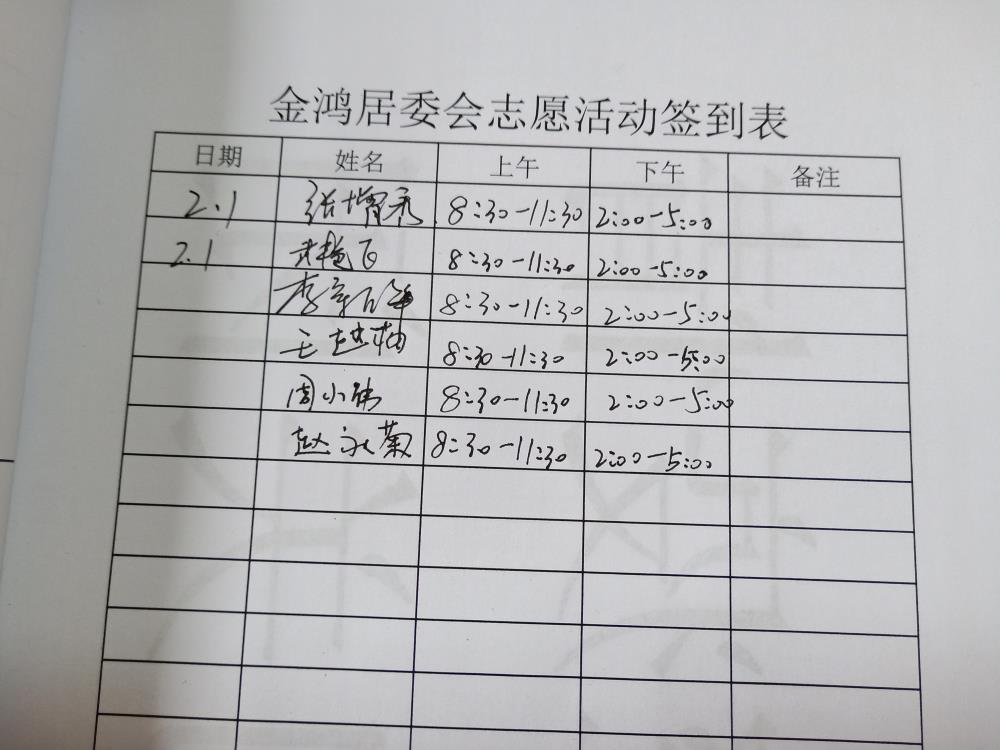 金鸿居委会志愿活动签到表
日期 姓名 上午 下午 备注
2.1 张增秀 8:30-11:30 2:00-5:00
2.1 8:30-11:30 2:00-5:00
李 8:30-11:30 2:00-5:00
王越柚 8:30-11:30 2:00-5:00
周小 8:30-11:30 2:00-5:00
赵永菊 8:30-11:30 2:00-5:00